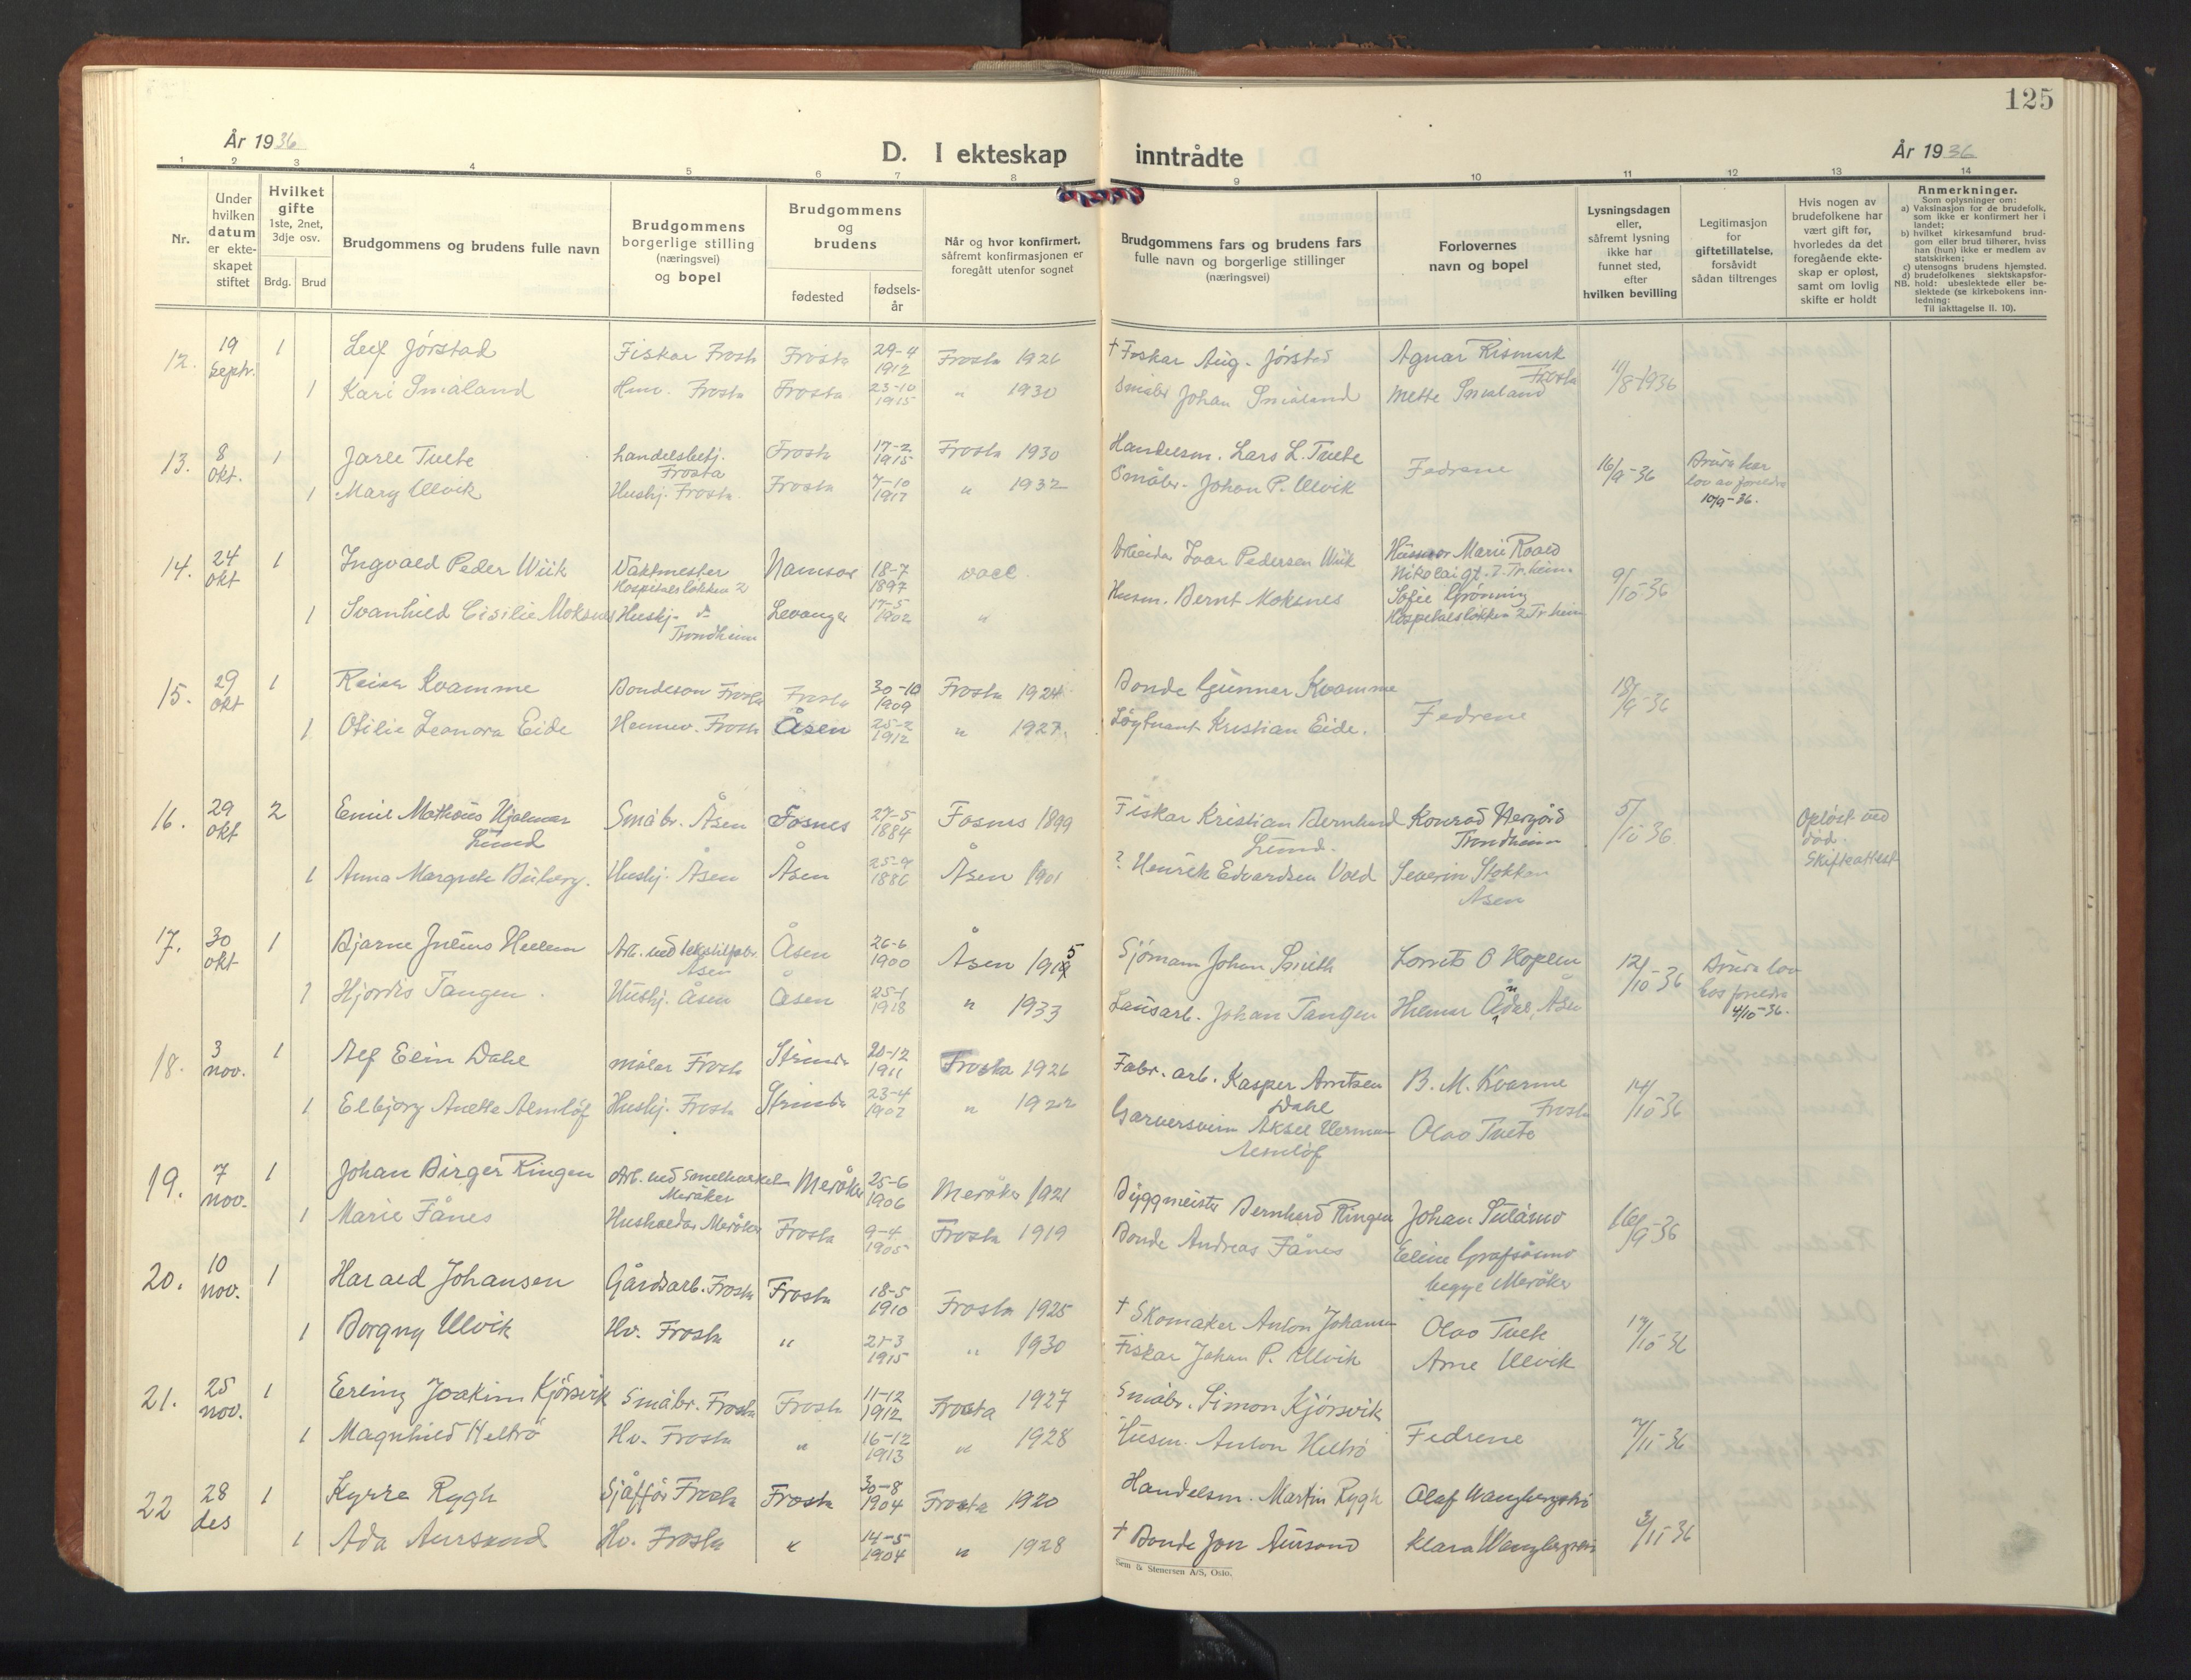 125
År 1936
D. I ekteskap inntrådte
År 1936
1 2 3 4 5 6 7 8 9 10 11 12 13 14
Nr.
Under
hvilken
datum
er ekte-
skapet
stiftet
Hvilket
gifte
1ste, 2net,
3dje osv.
Brdg. Brud
Brudgommens og brudens fulle navn
Brudgommens
borgerlige stilling
(næringsvei)
og bopel
Brudgommens
og
brudens
fødested
fødsels-
år
Når og hvor konfirmert,
såfremt konfirmasjonen er
foregått utenfor sognet
Brudgommens fars og brudens fars
fulle navn og borgerlige stillinger
(næringsvei)
Forlovernes
navn og bopel
Lysningsdagen
eller,
såfremt lysning
ikke har
funnet sted,
efter
hvilken bevilling
Legitimasjon
for
giftetillatelse,
forsåvidt
sådan tiltrenges
Hvis nogen av
brudefolkene har
vært gift før,
hvorledes da det
foregående ekte-
skap er opløst,
samt om lovlig
skifte er holdt
Anmerkninger.
Som oplysninger om:
a) Vaksinasjon for de brudefolk,
som ikke er konfirmert her i
landet;
b) hvilket kirkesamfund brud-
gom eller brud tilhører, hviss
han (hun) ikke er medlem av
statskirken;
c) utensogns brudens hjemsted.
d) brudefolkenes slektskapsfor-
NB. hold: ubeslektede eller be-
slektede (se kirkebokens inn-
ledning:
Til iakttagelse II. 10).
12. 19 Septr. 1 Leif Jørstad Fiskar Frosta Frosta 29-4 1912 Frosta 1926 † Fiskar Aug. Jørstad Agnar Rismark Frosta 11/8-1936
1 Kari Småland Hmv. Frosta Frosta 23-10 1915 " 1930 Småbr Johan Småland Mette Småland
13. 8 Okt. 1 Jarle Tvete handelsbetj. Frosta Frosta 17-2 1915 Frosta 1930 Handelsm. Lars L. Tvete Fedrene 16/9-36 Brura har lov av foreldra 10/9-36.
1 Mary Ulvik Hushj. Frosta Frosta 7-10 1917 " 1932 Småbr. Johan P. Ulvik
14. 24 Okt 1 Ingvald Peder Wiik Vaktmester Hospitalsløkken 2 Namsos 18-7 1897 Arbeider Ivar Pedersen Wiik Husmor Marie Roald Nikolaigt. 7. Tr.heim. 9/10-36
1 Svanhild Cisilie Moksnes Hushj. Trondheim Levanger 17-5 1902 " Husm. Bernt Moksnes Sofie Grønning Hospitalsløkken 2 Tr.heim
15. 29 Okt 1 Reiar Kvamme Bondeson Frosta Frosta 30-10 1909 Frosta 1924 Bonde Gunnar Kvamme Fedrene 18/9-36
1 Otilie Leonora Eide Hmv. Frosta Åsen 25-2 1912 " 1927. Løytnant Kristian Eide.
16. 29 Okt 2 Emil Mathæus Hjalmar Lund Småbr. Åsen Fosnes 27-5 1884 Fosnes 1899 Fiskar Kristian Bernhard Lund. Konrad Trondheim 5/10 36 Opløst ved død. Skifteattest
1 Anna Margrete Buberg. Hushj. Åsen Åsen 25-9 1886 Åsen 1901 ? Henrik Edvardsen Vold Severin Stokkan Åsen
17. 30 Okt 1 Bjarne Julius Arb. ved tekstilfabr. Åsen Åsen 26-6 1900 Åsen 1915 Sjømann Johan Smith Lorrits O Hoplen 12/10-36 Brura lov hos foreldre 4/10-36.
1 Hjordis Tangen. Hushj. Åsen Åsen 25-1 1918 " 1933 Lausarb. Johan Tangen Åsen
18. 3 nov. 1 Alf Elin Dahl målar Frosta Strinda 20-12 1911 Frosta 1926 Fabr. arb. Kasper Arntsen Dahl B. M. Kvamme Frosta 14/10-36
1 Elbjørg Anette Almlöf Hushj. Frosta Strinda 23-4 1907 " 1922 Garversvein Aksel Herman Almlöf Olav Tvete
19. 7 nov. 1 Johan Birger Ringen Arb. ved Smelteverket Meråker Meråker 25-6 1906 Meråker 1921 Byggmeister Bernhard Ringen Johan Sulåmo 16/9-36
1 Marie Fånes Husholdar Meråker Frosta 9-4 1905 Frosta 1919 Bonde Andreas Fånes Eline begge Meråker
20. 10 nov. 1 Harald Johansen Gårdsarb. Frosta Frosta 18-5 1910 Frosta 1925 † Skomaker Anton Johansen Olav Tvete 19/10-36
1 Borgny Ulvik Hv. Frosta " 21-3 1915 " 1930 Fiskar Johan P. Ulvik Arne Ulvik
21. 25 nov. 1 Erling Joakim Kjørsvik Småbr. Frosta Frosta 11-12 1912 Frosta 1927 Småbr. Simon Kjørsvik Fedrene 7/11-36
1 Magnhild Heltrö Hv. Frosta " 16-12 1913 " 1928 Husm. Anton Heltrö
22 28 des 1 Kyrre Rygh Sjåffør Frosta Frosta 30-8 1904 Frosta 1920 Handelsm. Martin Rygh Olaf Wangbergstrø 3/11-36
1 Ada Aursand Hv. Frosta " 14-5 1904 " 1928 † Bonde Jon Aursand Klara
Sem & Stenersen A/S, Oslo.